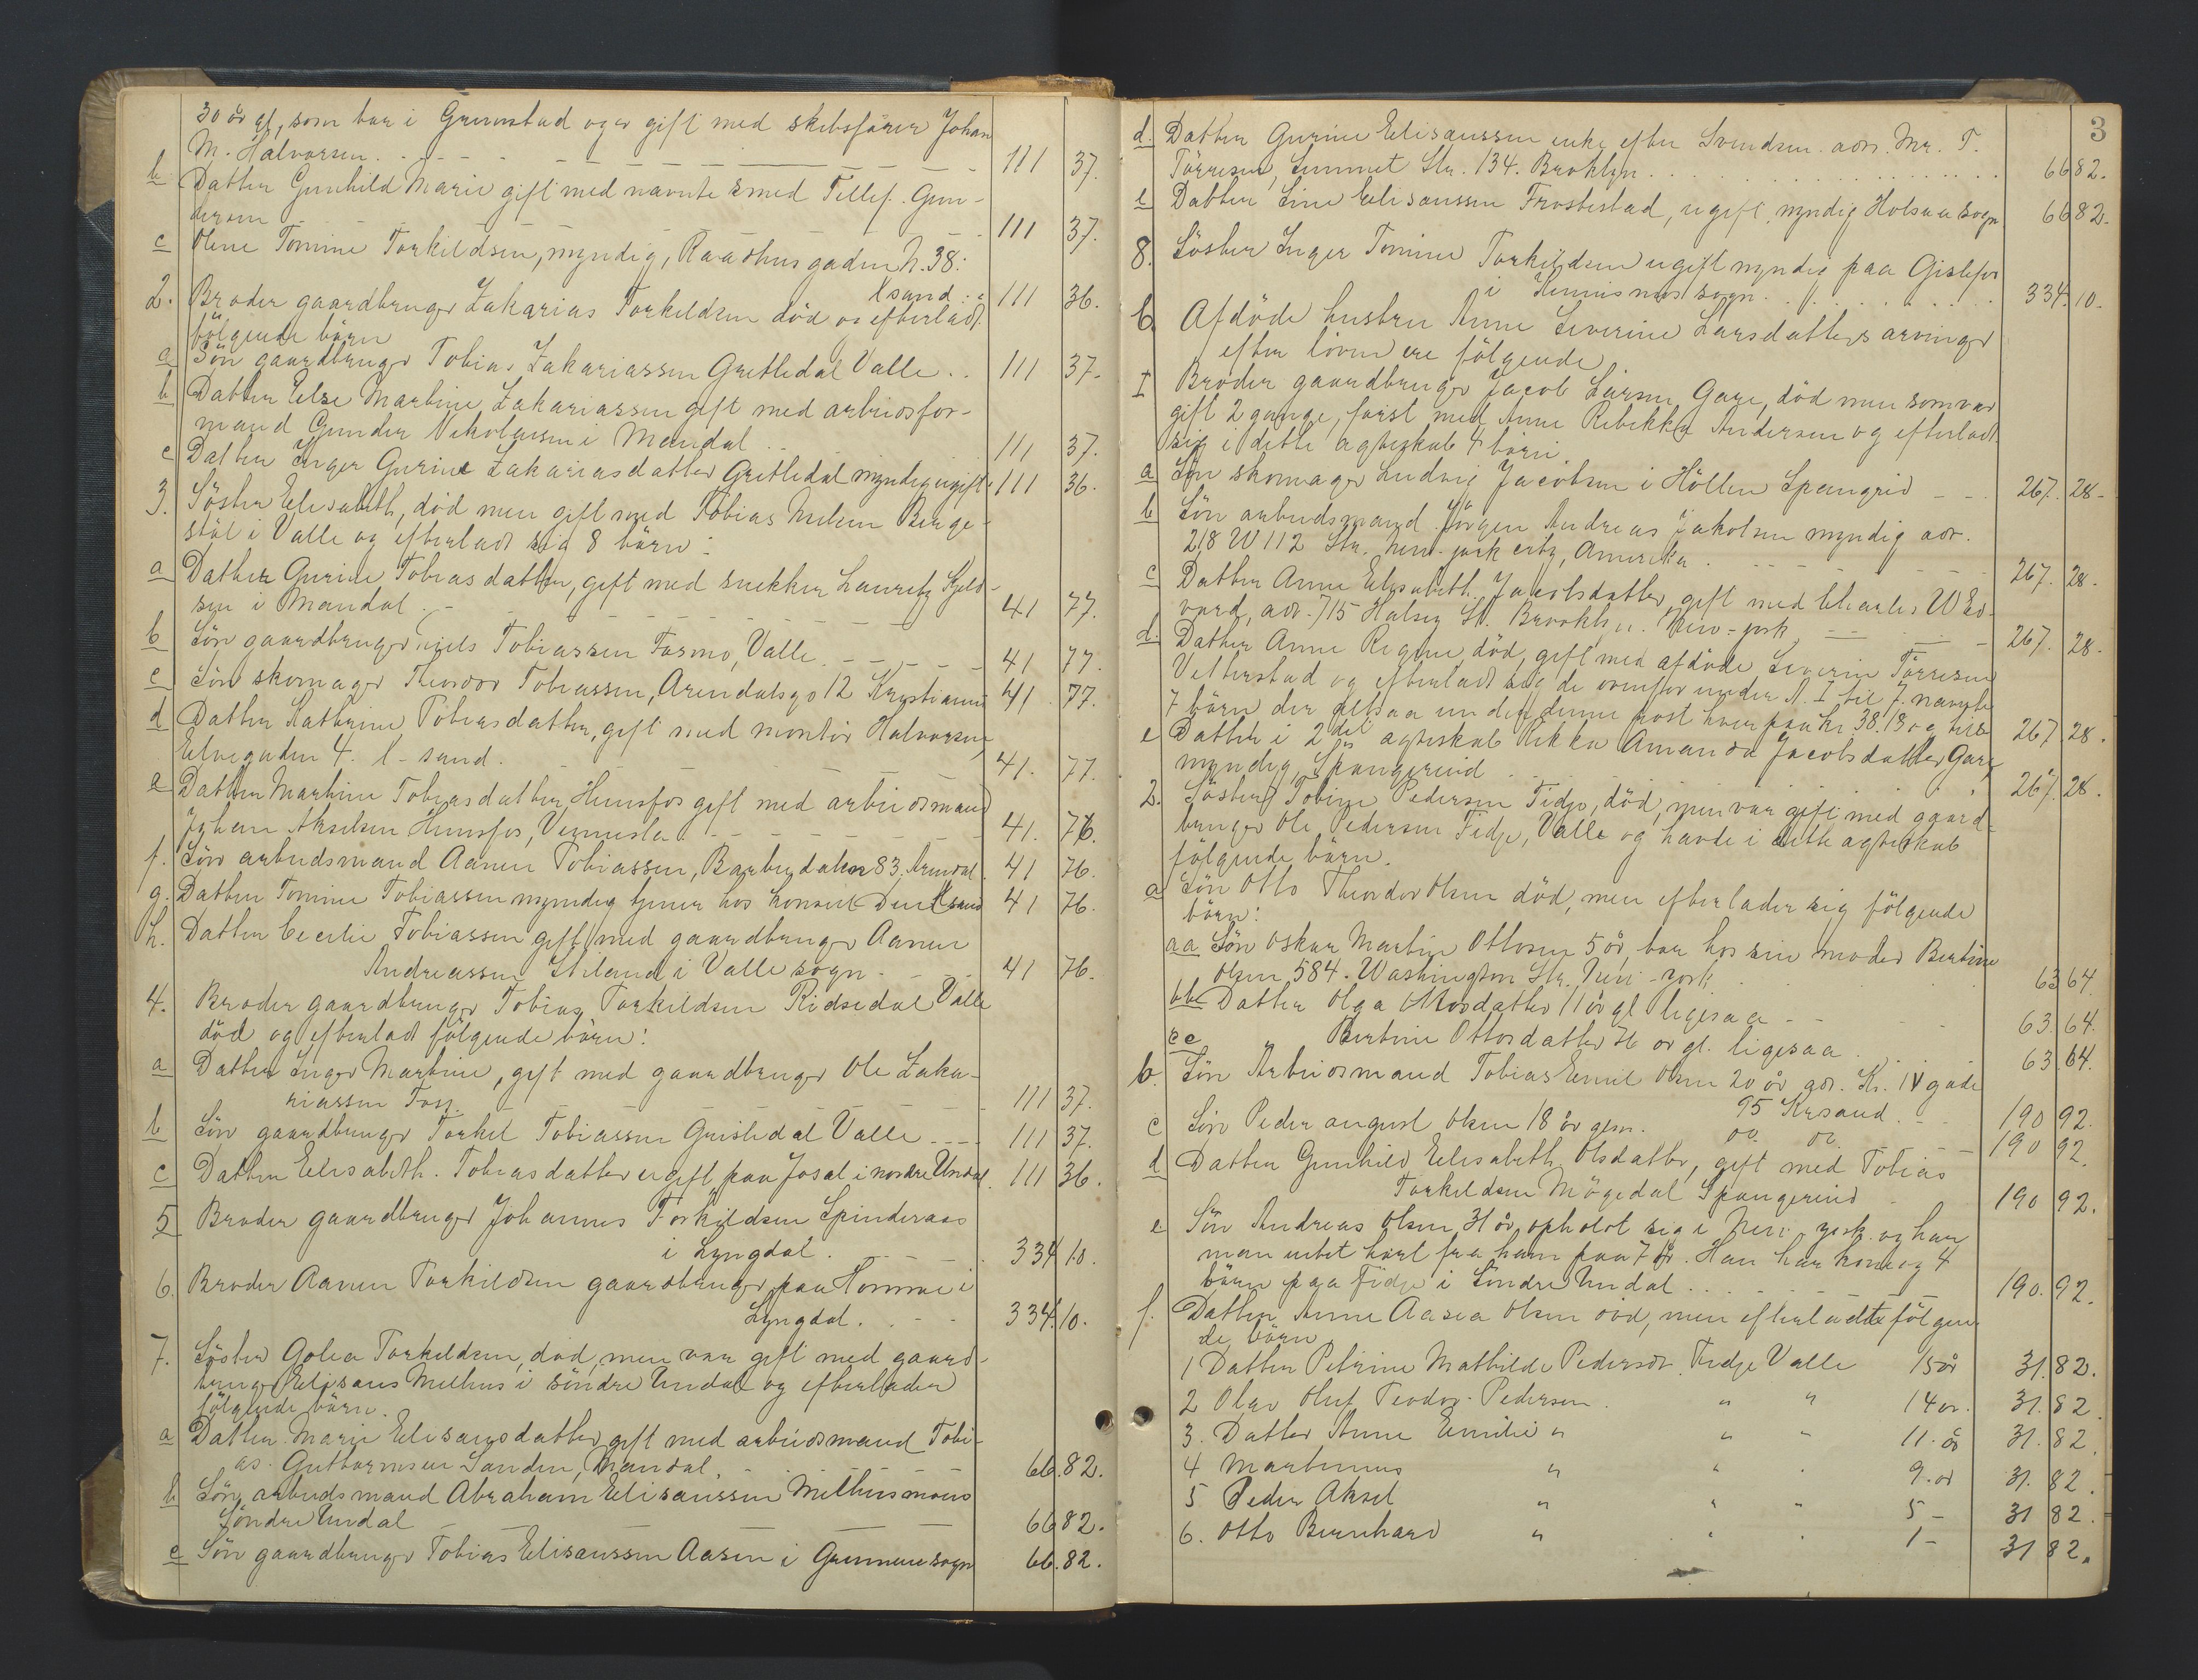 30 år gl, som bor i Grimstad og er gift med skibsfører Johan
M. Halvorsen. 111 37.
b Datter Gunhild Marie gift med nævnte smed Tellef. Gun-
dersen 111 37.
c Oline Tomine Torkildsen, myndig, Raadhusgaden N. 38.
Xsand. 111 36.
2. Broder gaardbruger Zakarias Torkildsen død og efterladt
følgende børn
a Søn gaardbruger Tobias Zakariassen Gretledal Valle. . 111 37.
b Datter Else Martine Zakariassen gift med arbeidsfor-
mand Gunder Nikolaisen i Mandal 111 37.
c Datter Inger Gurine Zakariasdatter Gretledal myndig ugift. 111 36.
3. Søster Elisabeth, død men gift med Tobias Nilsen Berge-
støl i Valle og efterladt sig 8 børn:
a Datter Gurine Tobiasdatter, gift med snekker Lauretz Kjeld-
sen i Mandal. 41 77.
b Søn gaardbruger Niels Tobiassen Fasmo, Valle. 41 77.
c Søn skomager Theodor Tobiassen, Arendalsg. 12 Kristiania 41 77.
d Datter Kathrine Tobiasdatter, gift med montør Halvorsen,
Elvegaden 4. X-sand. 41. 77.
e Datter Martine Tobiasdatter, Hunsfos gift med arbeidsmand
Johan Akselsen Hunsfos, Vennesla. 41. 76.
f. Søn arbeidsmand Aanen Tobiassen, Barbudalen 83. Arendal. 41 76.
g. Datter Tomine Tobiassen myndig tjener hos konsul Due Xsand 41 76.
h. Datter Cecilie Tobiassen gift med gaardbruger Aanen
Andreassen Stiland i Valle sogn. 41 76.
4. Broder gaardbruger Tobias Torkildsen Ridsedal Valle
død og efterladt følgende børn:
a Datter Inger Martine, gift med gaardbruger Ole Zaka-
riassen Foss. 111 37.
b Søn gaardbruger Torkel Tobiassen Gristedal Valle. 111 37.
c Datter Elisabeth. Tobiasdatter ugift paa Josal i nordre Undal. 111 36.
5 Broder gaardbruger Johannes Torkildsen Spinderaas
i Lyngdal. 334 10.
6. Broder Aanen Torkildsen gaardbruger paa Homme i
Lyngdal. 334. 10.
7. Søster Golea Torkildsen, død, men var gift med gaard-
bruger Elisæus Melhus i søndre Undal og efterlader
følgende børn.
a Datter Marie Elisæusdatter gift med arbeidsmand Tobi-
as. Guttormsen Sanden, Mandal. 66. 82.
b Søn, arbeidsmand Abraham Elisæussen Melhusmoen
Søndre Undal 66 82.
c Søn gaardbruger Tobias Elisæussen Aasen i Grimnessogn 66. 82.
3
d. Datter Gurine Elisæussen enke efter Svendsen. adr. Mr. T.
Tørresen, Summet Str. 134. Broklyn. 66 82.
e Datter Sine Elisæussen Frostestad, ugift myndig Holsaa sogn 66 82.
8. Søster Inger Tomine Torkildsen ugift myndig paa Gislefos
i Hennisnæs sogn. 334. 10.
B Afdøde hustru Anne Severine Larsdatters arvinger
efter loven ere følgende
I Broder gaardbruger Jacob Larsen Gare, død men som var
gift 2 gange, først med Anne Rebekka Andersen og efterladt
sig i dette ægteskab 4 børn.
a Søn skomager Ludvig Jacobsen i Høllen Spangrid 267. 28.
b Søn arbeidsmand Jørgen Andreas Jakobsen myndig adr.
218 W 112 Str. New-york city, Amerika. 267. 28.
c Datter Anne Elisabeth Jacobsdatter, gift med Charles W Ed-
vard, adr. 715 Halsey St. Brooklyn. New-york. 267. 28.
d. Datter Anne Regine død, gift med afdøde Severin Tørresen
Vetterstad og efterladt sig de ovenfor under A. I til 7. nævnte
7 børn der altsaa under denne post hver faa kr 38.18 og tils 267 28.
e Datter i 2det ægteskab Rikka Amanda Jacobsdatter Gare,
myndig, Spangereid 267. 28.
2. Søster Tobine Pedersen Fidje, død, men var gift med gaard-
bruger Ole Pedersen Fidje, Valle og havde i dette ægteskab
følgende børn.
a Søn Otto Theodor Olsen død, men efterlader sig følgende
børn:
aa Søn Oskar Martin Ottosen 5 år, bor hos sin moder Bertine
Olsen 584. Washington Str. New-york. 63 64.
bb Datter Olga Ottosdatter 11 år gl ligesaa 63. 64.
cc Bertine Ottosdatter år gl. ligesaa. 63. 64.
b. Søn Arbeidsmand Tobias Emil Olsen 20 år adr. Kr. IV gade
95 Krsand. 190 92.
c Søn Peder august Olsen 18 år do. do. 190 92.
d Datter Gunhild Elisabeth Olsdatter, gift med Tobias
Torkildsen Møgedal Spangereid 190 92.
e Søn Andreas Olsen, 31 år, opholdt sig i New-york og har
man intet hørt fra ham paa 7 år. Han har kone og 4
børn paa Fidje i Søndre Undal. 190. 92.
f. Datter Anne Aasea Olsen død, men efterladte følgen
de børn.
1 Datter Petrine Mathilde Pedersdr. Fidje Valle 15 år 31. 82.
2 Olav Oluf Teodor Pedersen. " " 14 år. 31. 82.
3. Datter Anne Emilie " " " 11. år 31. 82.
4 Martinius " " " 9. år 31. 82.
5 Peder Aksel " " " 5 - 31 82.
6. Otto Bernhard " " " 1 - 31 82.